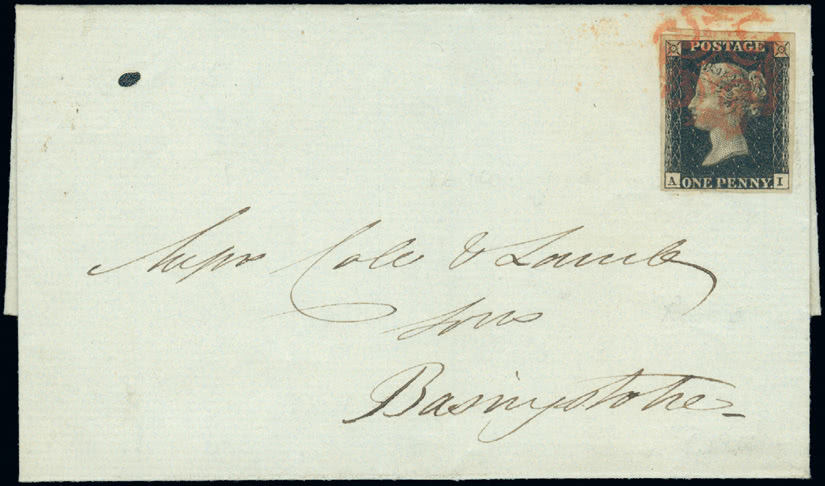 POSTAGE
A ONE PENNY I
Messrs Cole & Lamb
Sons
Basingstoke